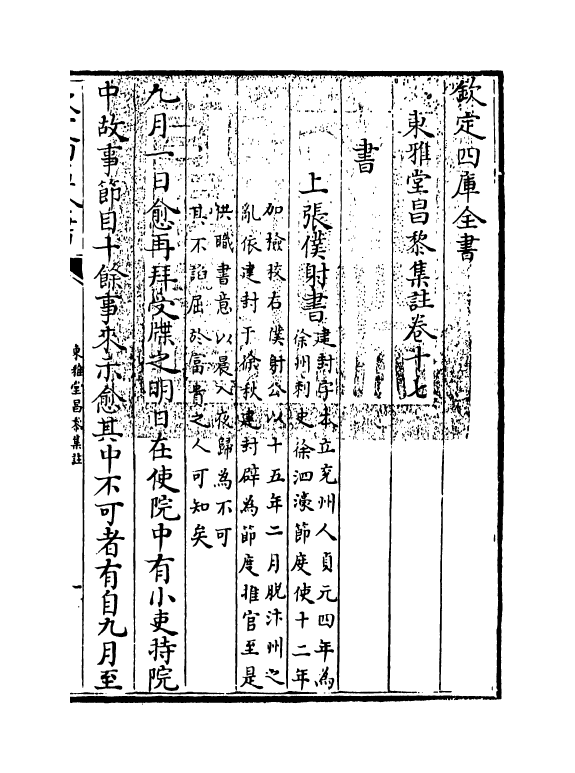 欽定四庫全書
東雅堂昌黎集註卷十七
書
上張僕射書
建封字本立兖州人貞元四年為
徐州刺史徐泗濠節度使十二年
加檢校右僕射公以十五年二月脱汴州之
亂依建封于徐秋建封辟為節度推官至是
供職書意以晨入夜歸為不可
其不諂屈於富貴之人可知矣
九月一日愈再拜受牒之明日在使院中有小吏持院
中故事節目十餘事來示愈其中不可者有自九月至
東雅堂昌黎集註
一